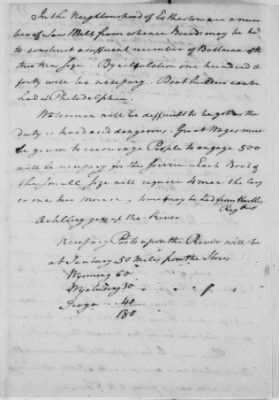 In the Neighbourhood of Estherton are a num
ber of Saw Mills from whence Boards may be had
to construct a sufficient number of Batteaus of the
true size. By calculation one hundred &
forty will be necessary. Boat builders can be
had in Philadelphia.
Watermen will be difficult to be got as the
duty is hard and dangerous. Great Wages must
be given to encourage People to engage 500
will be necessary for the service. Each Boat of
the Small size will require 4 men the larg
er one two more. Some may be had from
Regts
Artillery goes up the River
Necessary Posts upon the River will be
at Sunbury 50 Miles from the Stores
Wyoming 60
Wyalusing 30
Tioga 40
180